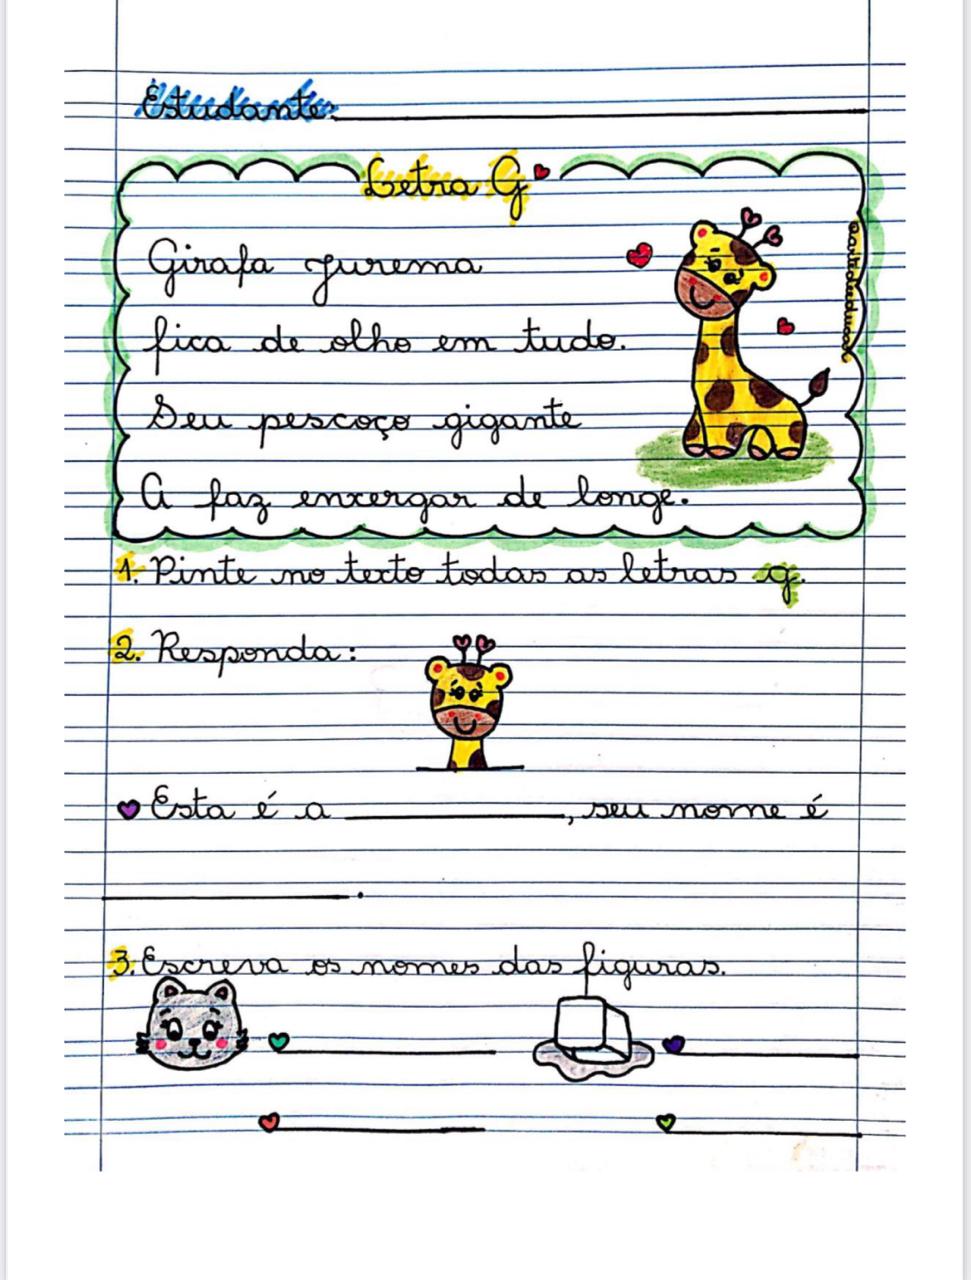 Estudante:
Letra G
Girafa Jurema
fica de olho em tudo.
Seu pescoço gigante
A faz enxergar de longe.
1. Pinte no texto todas as letras g.
2. Responda:
Esta é a ____________, seu nome é
____________.
3. Escreva os nomes das figuras.